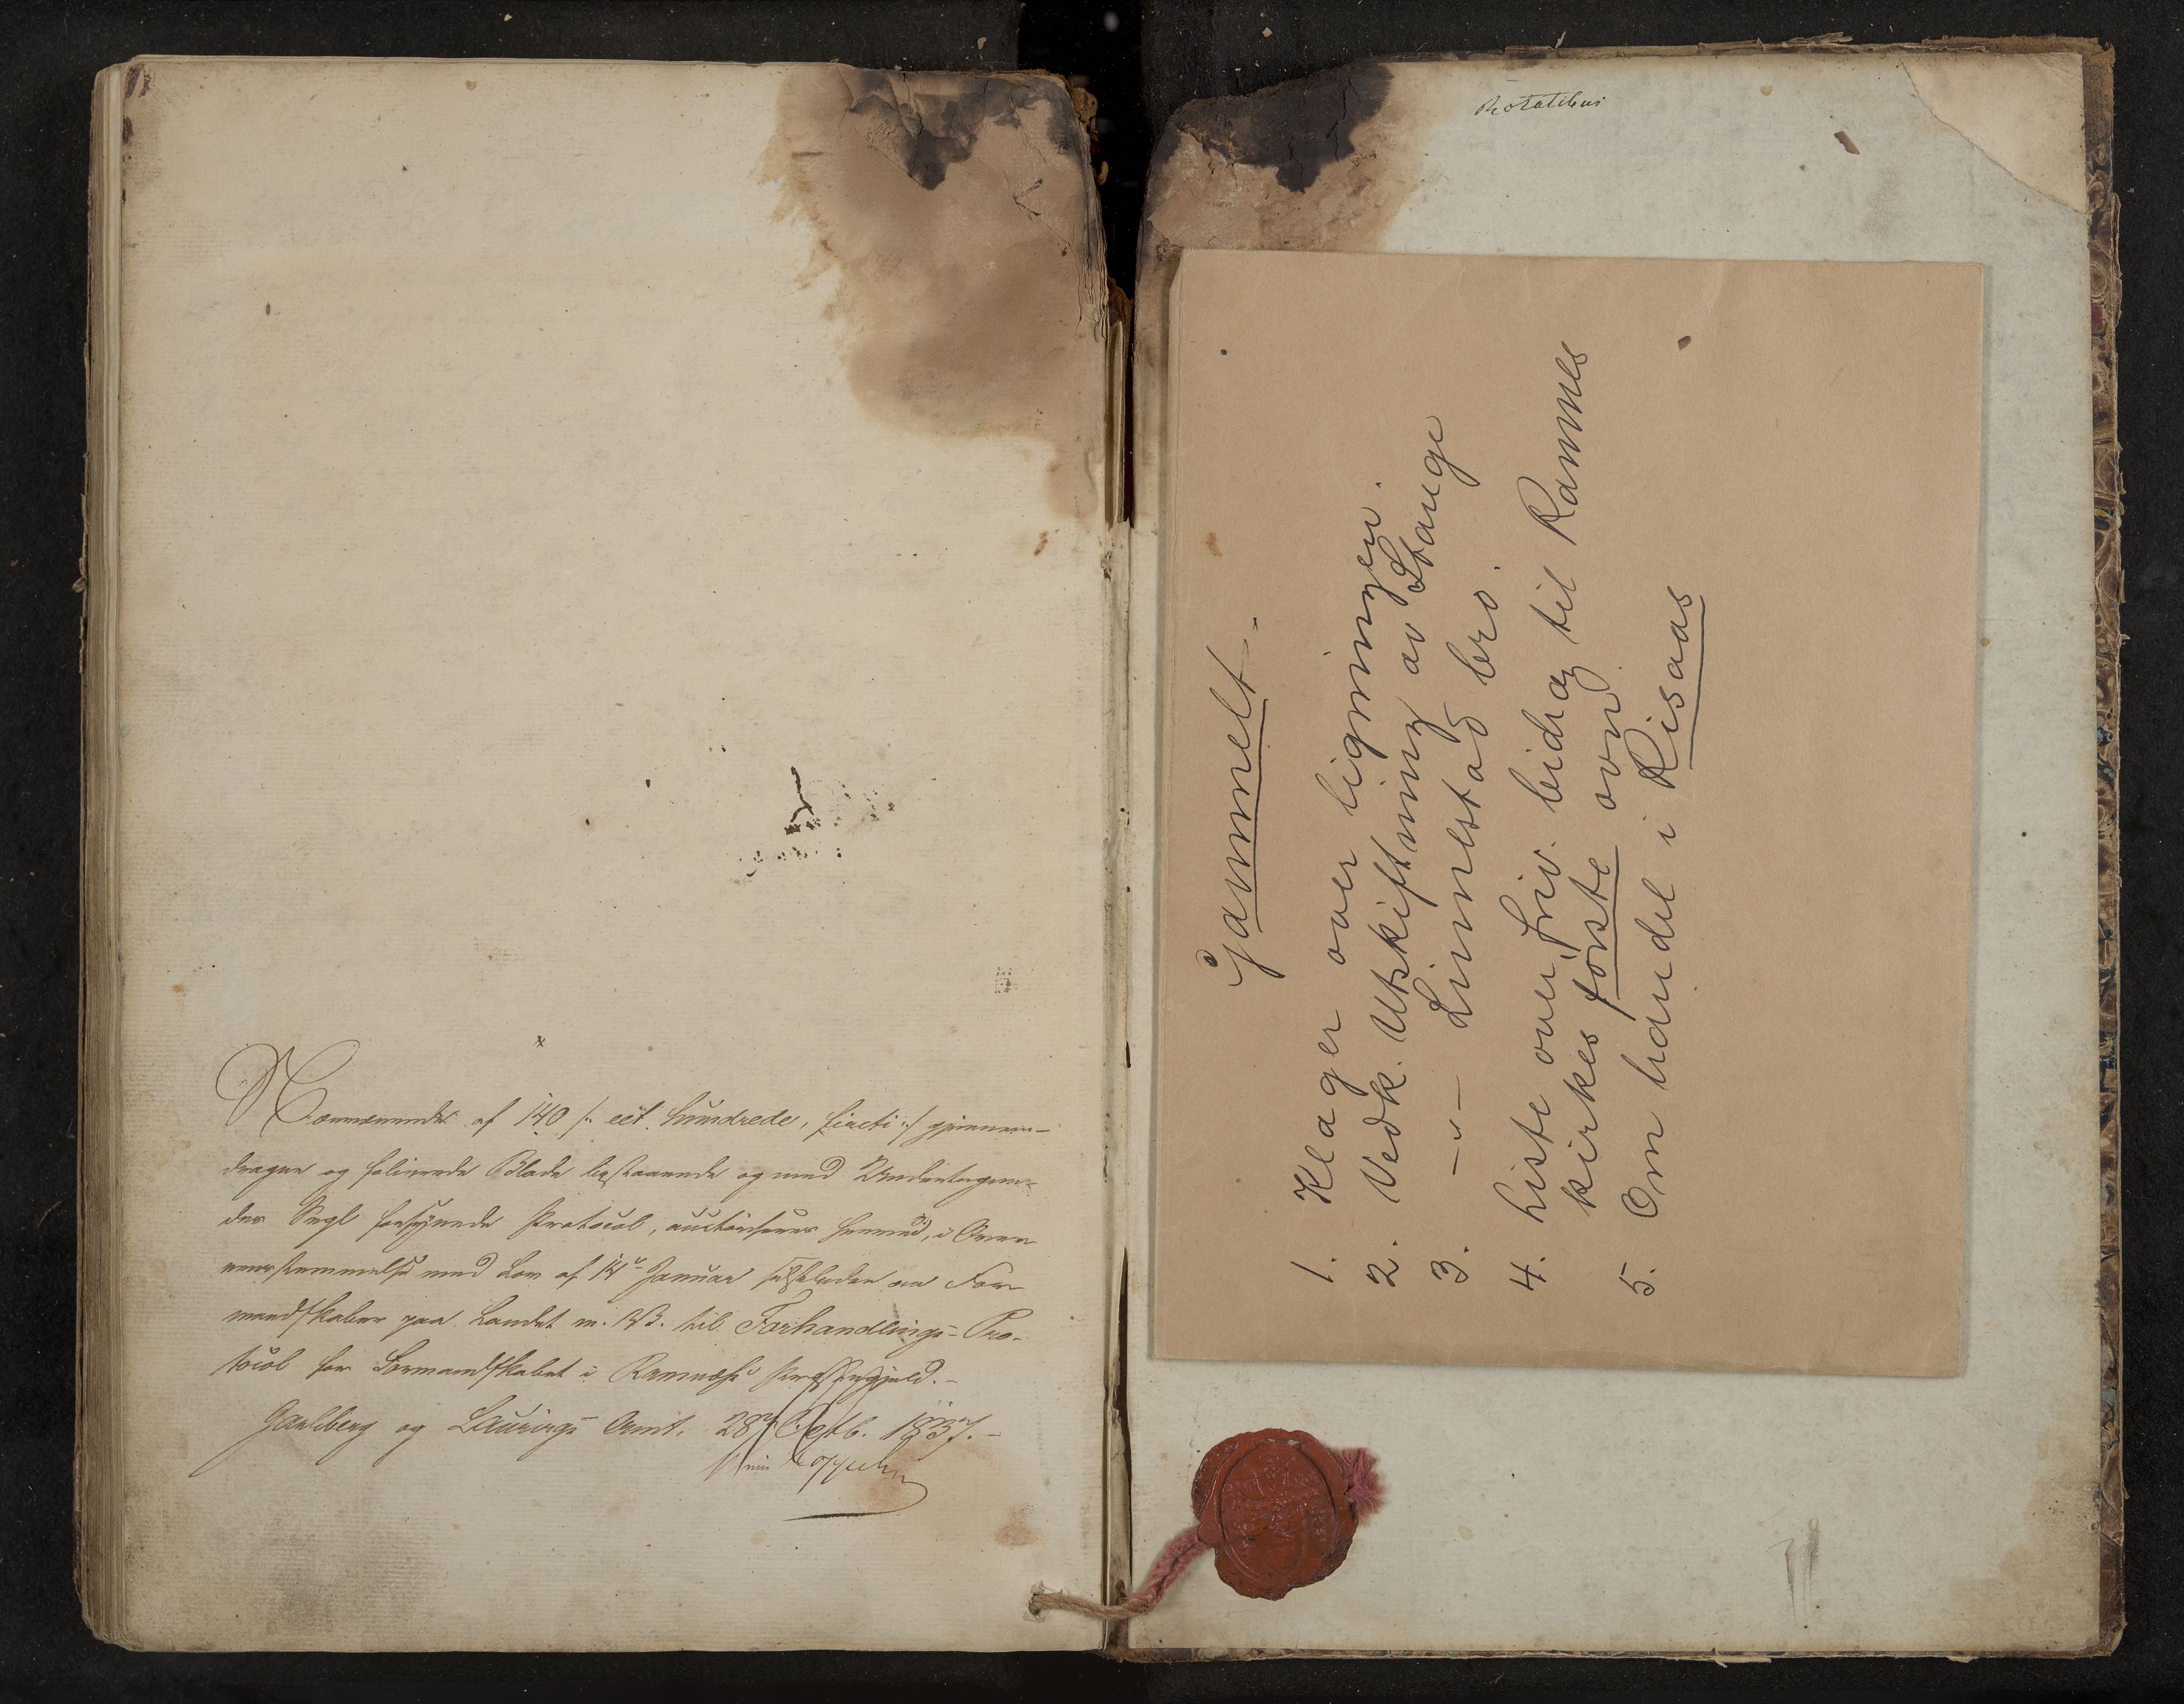 Nærværende af 140 /: eet hundrede, fireti :/ gjennem-
dragne og folierede Blade bestaaende og med Undertegne-
des Segl forsynede Protocol, auctoriseres herved, i Over-
eensstemmelse med Lov af 14de Januar sidstleden om For-
mandskaber paa Landet m. V. til Forhandlings-Pro-
tocol for Formandskabet i Ramnæs Præstegjeld.-
Jarlsberg og Laurvigs Amt, 28de Septb. 1837.-
Gammelt.
1. Klager over ligningen.
2. Vedk. Utskiftning av Stange
3. -"- Linnestad bro.
4. Liste over friv. bidrag til Ramnes
kirkes første ovn
5. Om handel i Risaas